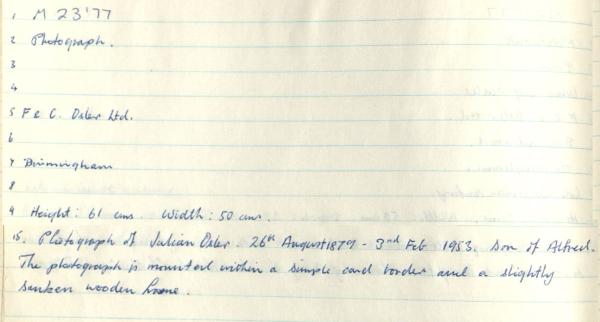 1 M 23'77
2 Photograph.
3
4
5 F & C. Osler Ltd.
6
7 Birmingham
8
9 Height: 61 cms. Width: 50 cms.
15. Photograph of Julian Osler. 26th August 1879 - 3rd Feb 1953. Son of Alfred.
The photograph is mounted within a simple card border and a slightly
sunken wooden frame.